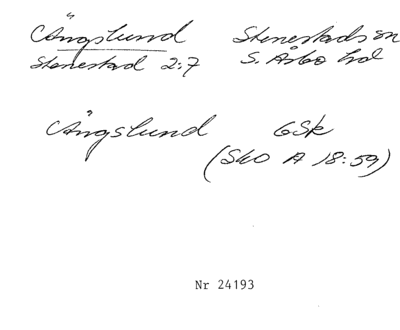 Ängslund Stenestads sn
Stenestad 2:7 S. Åsbo hd
Ängslund GSk
(Sko A 18:59)
Nr 24193